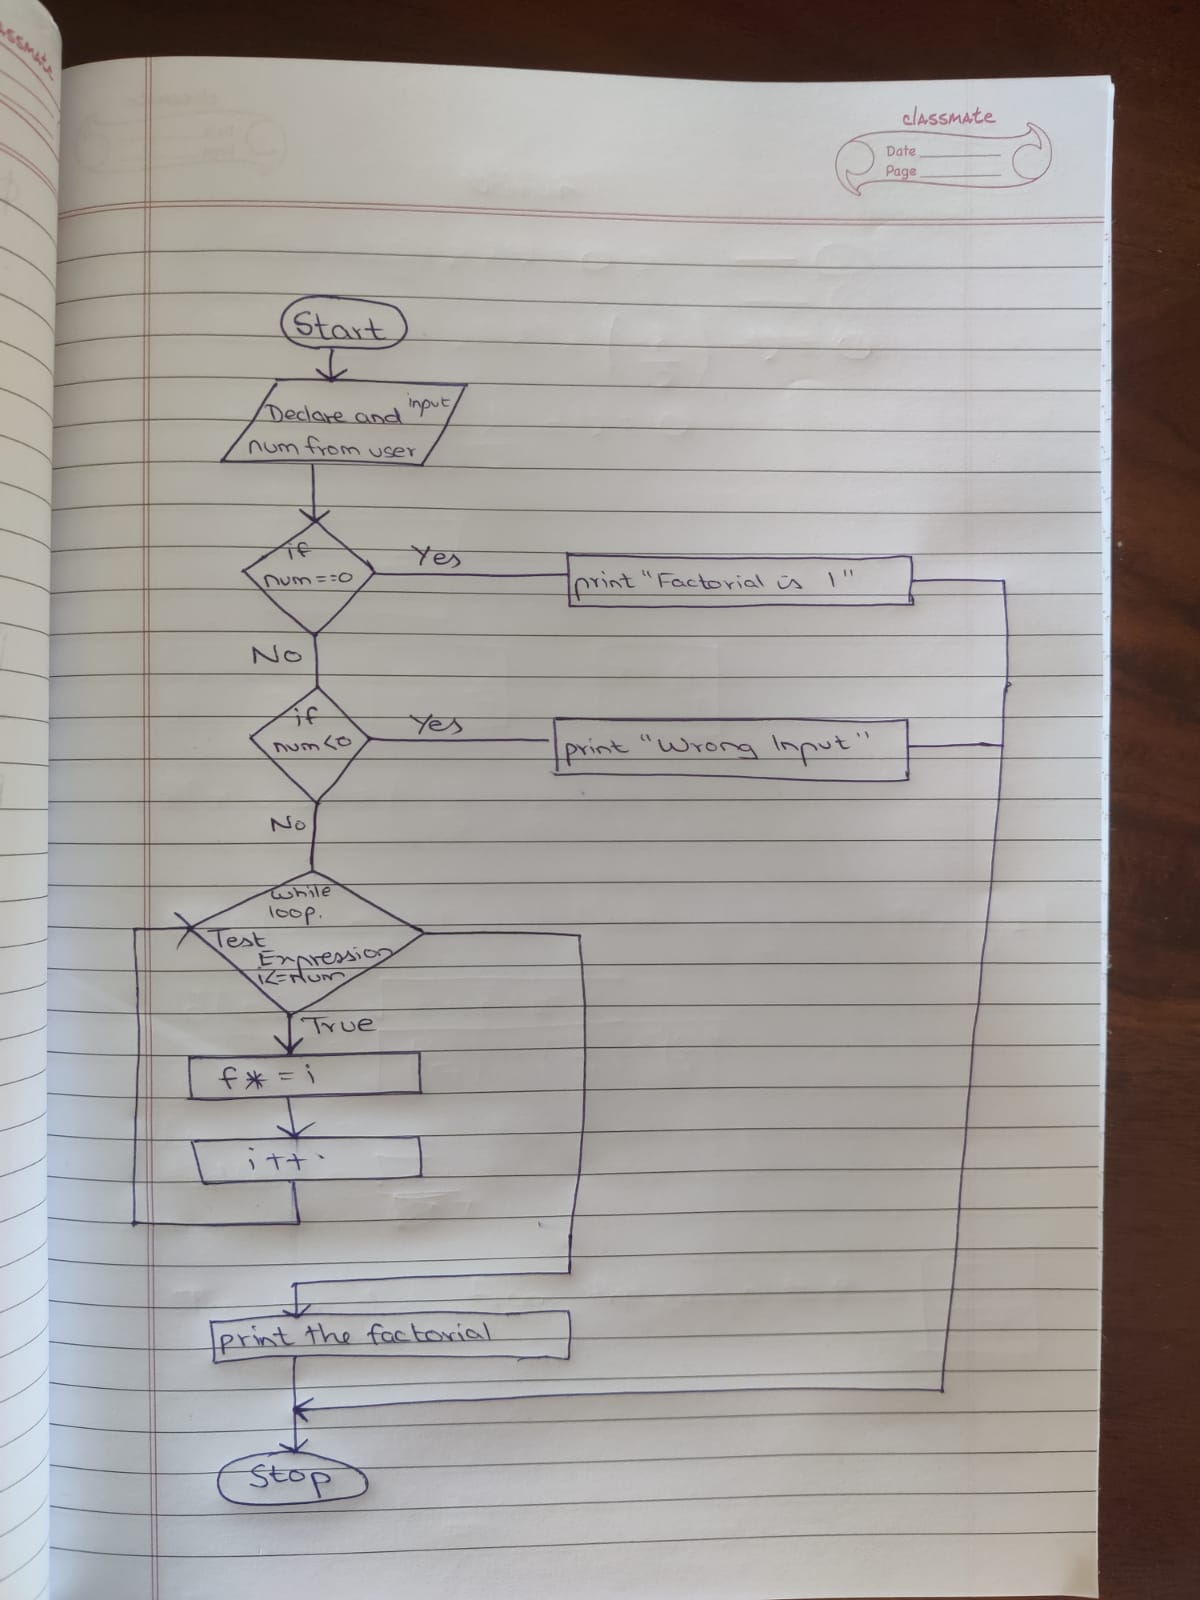 classmate
Date
Page
Start
Declare and input
num from user
if
num==0
Yes
print "Factorial is 1"
No
if
num<0
Yes
print "Wrong Input"
No
while
loop.
Test
Expression
i<=num
True
f*=i
i++
print the factorial
Stop